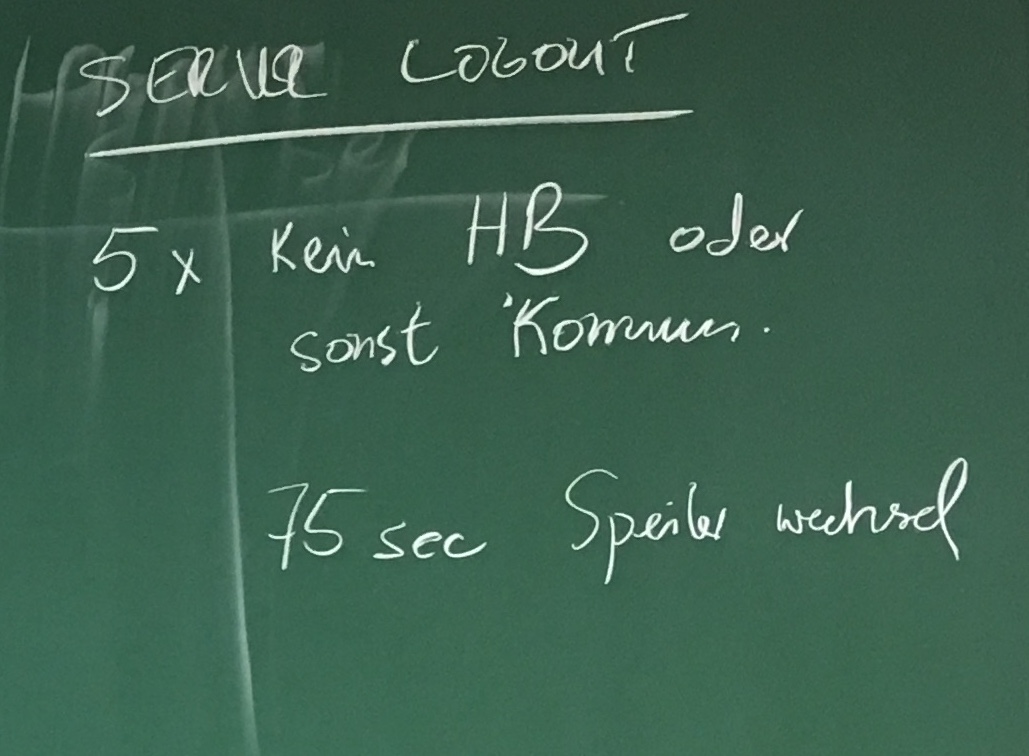 SERVER LOGOUT
5x Kein HB oder
sonst Kommun.
75 sec Speiler wechsel